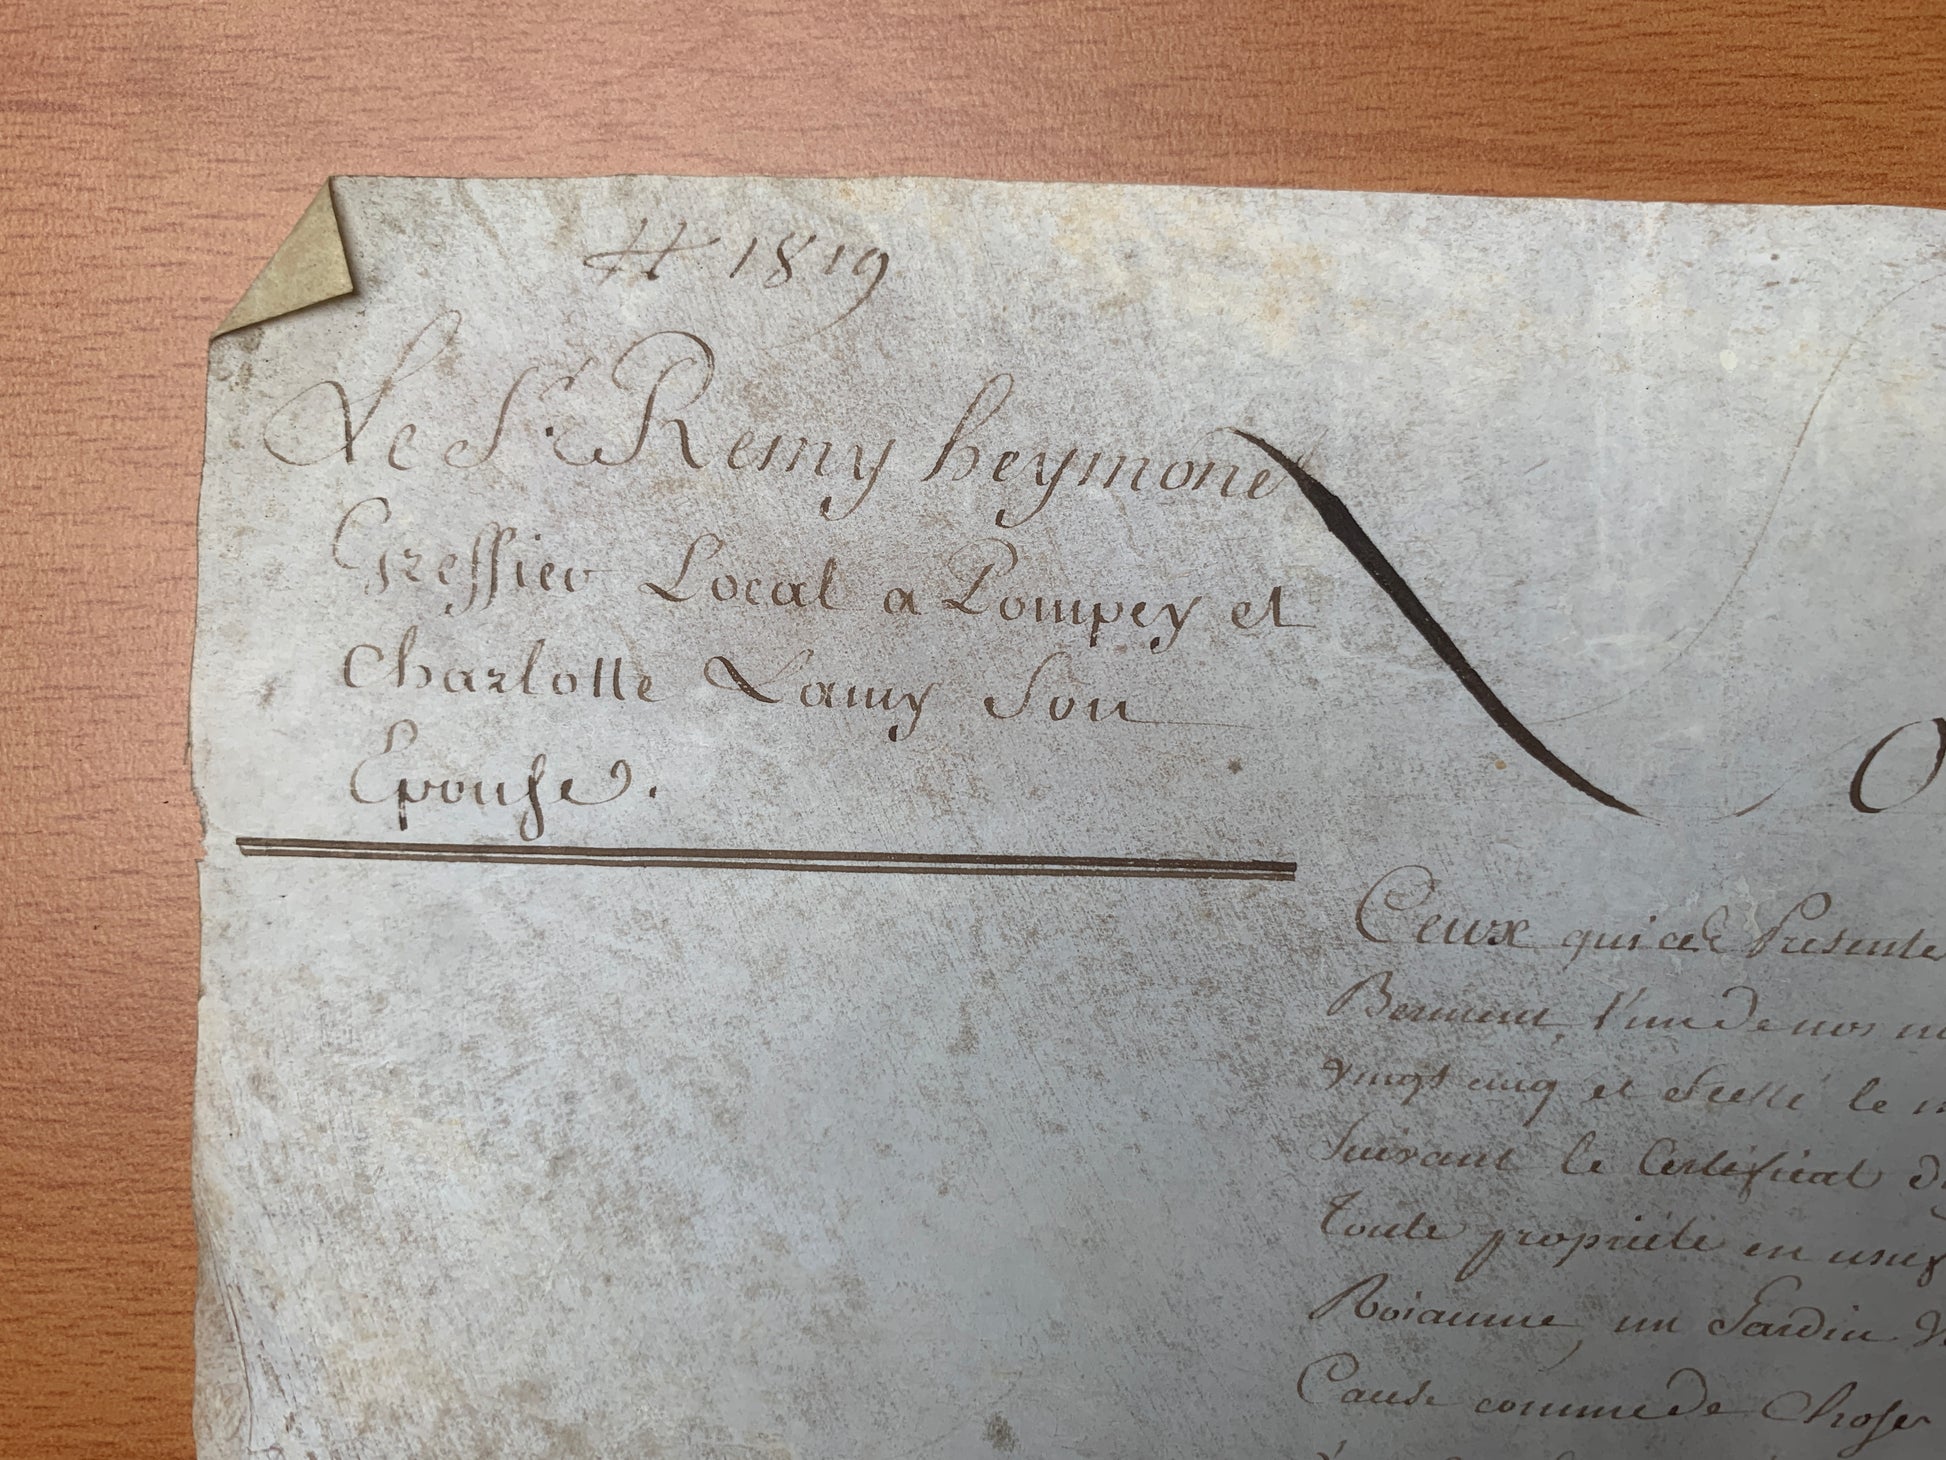 # 1819
Le Sr. Remy heymone
Greffier Local a Pompey et
Charlotte Lamy Son
Epouse.
O
Ceux qui ces Presente
l'un de nos
vingt cinq et Scellé le
Suivant le Certificat
toute propriété en
Roiaume, un Jardin
Cause comme de Chose